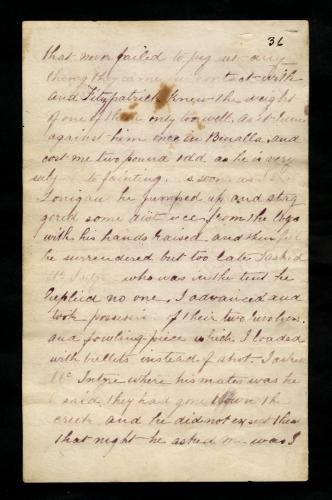 36
that never failed to peg out any
thing they came in contact with
and Fitzpatrick knew the weight
of one of them only too well, as it run
against him once in Benalla, and
cost me two pound odd as he is very
subject to fainting. as soon as I shot
Lonigan he jumped up and stag
gered some distance from the logs
with his hands raised and then fell
he surrendered but too late I asked
Mc Intyre who was in the tent he
Replied no one. I advanced and
took possession of their two revolvers
and fowling-piece which I loaded
with bullets instead of shot. I asked
Mc Intyre where his mates was he
said they had gone down the
creek and he did not expect them
that night he asked me was I